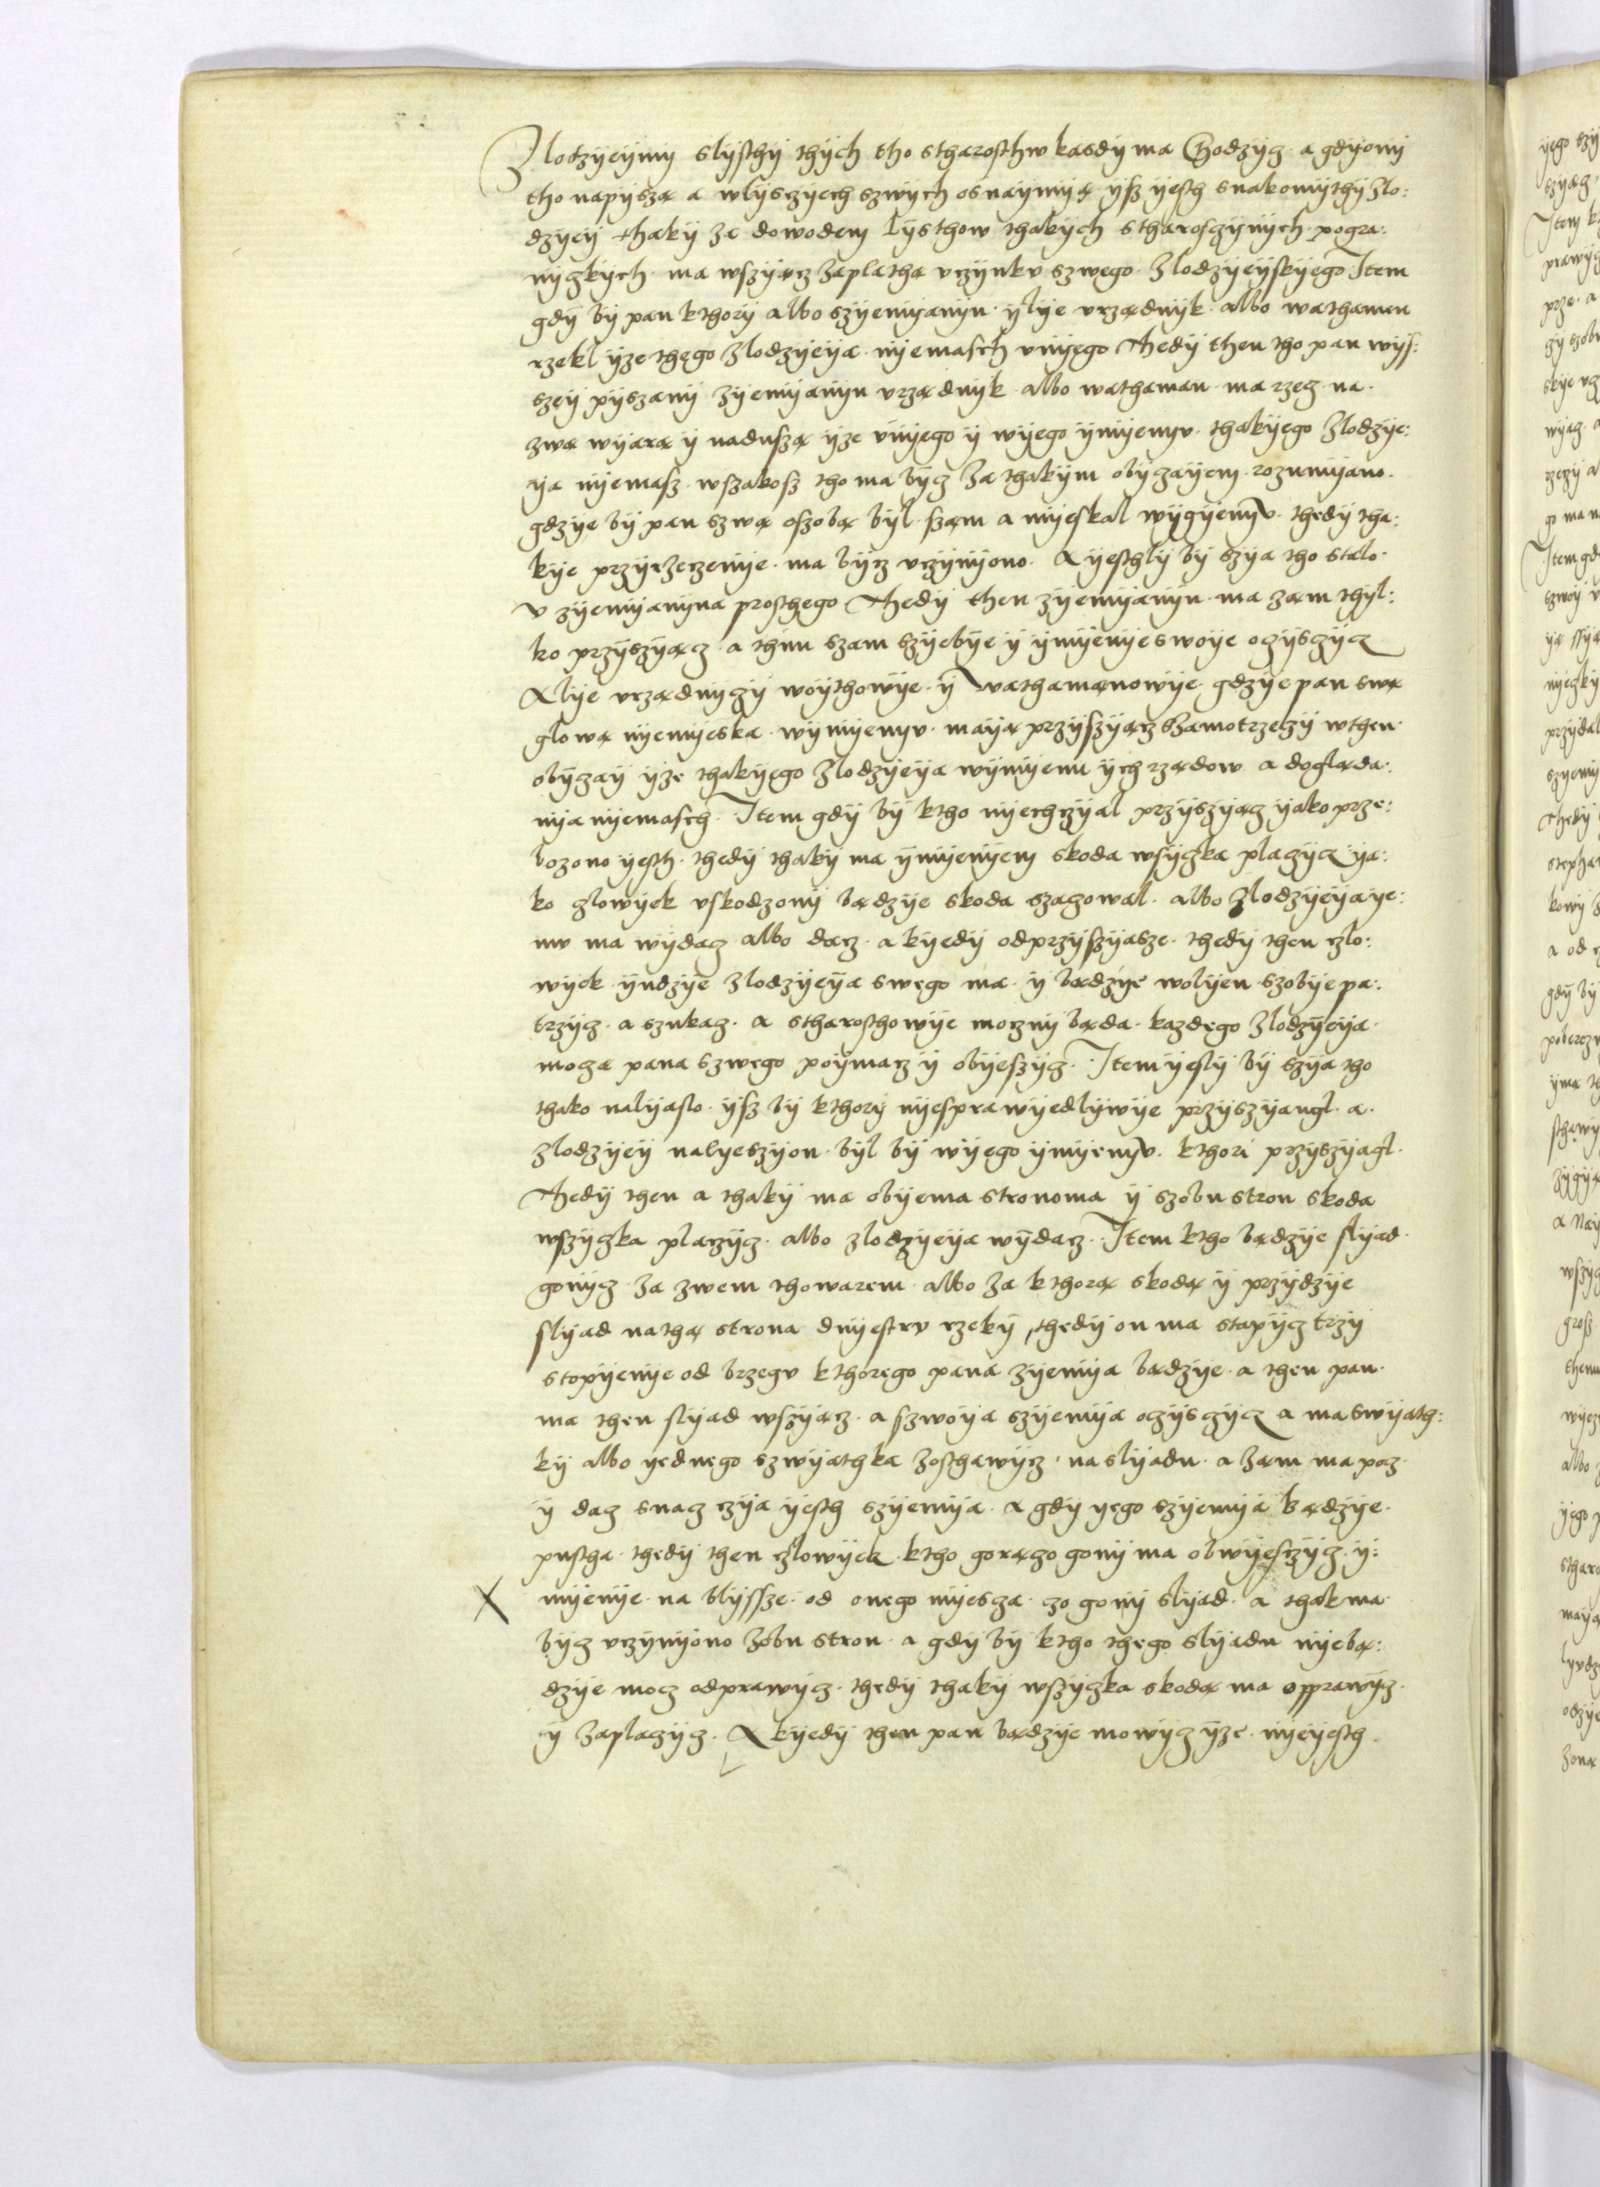 Zlodzyeymy slysthy thych tho stharosthw kasdy ma chodzycz. a gdy ony
tho napyszą a wlysczyech szwych osnaymyą. ysz yesth snakomythy zlo:
dzyey thaky za dowodem lysthow thakych stharosczynych. pogra:
nyczkych. ma wszyącz zaplatha vczynkv szwego. zlodzyeyskyego Item
gdy by pan kthory albo szyemyanyn. ylye vrzadnyk. albo wathaman
rzekl yze thego zlodzyeya. nyemasch vnyego Thedy then tho pan wys:
szey pyszany zyemyanyn vrządnyk. albo wathaman. ma rzecz na.
zwa wyarą y naduszą yze vnyego y wyego ymyenyv. thakyego zlodzye:
ya nyemasz. wszakosz tho ma bycz za thakym obyczayem. rozumyano.
gdzye by pan szwą oszobą byl. szam a myeskal wygyenyv. thedy tha:
kye przyrzeczenye. ma bycz vczynyono. A yesthly by szya tho stalo.
v zyemyanyna prosthego Thedy then zyemyanyn. ma zam thyl:
ko przyszyącz. a thym szam szyebye y ymyenye swoye oczysczycz
Alye vrządnyczy woythowye. y wathamanowye. gdzye pan swą
glową nyemyeska. wymyenyv. mayą przyszyącz szamotrzeczy wthen.
obyczay yze thakyego zlodzyeya wymyenu ych rządow. a dogląda:
nya nyemasch. Item gdy by ktho nyechczyal przyszyącz yako prze:
lozono yesth. thedy thaky ma ymyenyem skoda wsyczka placzycz. ya:
ko czlowyek vskodzony bądzye skoda szaczowal. albo zlodzyeya ye:
mv ma wydacz albo dacz. a kyedy odprzyszyasze. thedy then czlo:
wyek. yndzye zlodzyeya swego ma. y bądzye wolyen. szobye pa:
trzycz. a szukacz. a stharosthowye moczny bąda. kazdego zlodzyeya.
mocza pana szwego poymacz y obyesszycz. Item yesly by szya tho
thako nalyaslo. ysz by kthory nyesprawyedlywye przyszyangl. a.
zlodzyey nalyeszyon. byl by wyego ymyenyv. kthori przyszyagl.
Thedy then a thaky ma obyema stronoma y szobu stron skoda
wszyczka placzycz. albo zlodzyeya wydacz. Item ktho bądzye slyad.
gonycz. za zwem thowarem. albo za kthorą skodą y przydzye
slyad na thą strona dnyestrv rzeky, thedy on ma stapycz trzy
stopyenye od brzegv kthorego pana zyemya bądzye. a then pan.
ma then slyad wszyącz. a szwoya szyemya oczysczycz a ma swyath:
ky albo yednego szwyathka zosthawycz. na slyadu. a zam ma pocz
y dacz snacz czya yesth szyemya. a gdy yego szyemya bądzye.
pustha. thedy then czlowyek. ktho gorączo gony ma obwyesczycz. y:
myenye. na blyssze. od onego myescza. czo gony slyad. a thak ma.
bycz vczynyono zobu stron. a gdy by ktho thego slyadu nyebą:
dzye mocz odprawycz. thedy thaky wszyczka skodą ma opprawycz.
y zaplaczycz. A kyedy then pan bądzye mowycz yze. nyeyesth